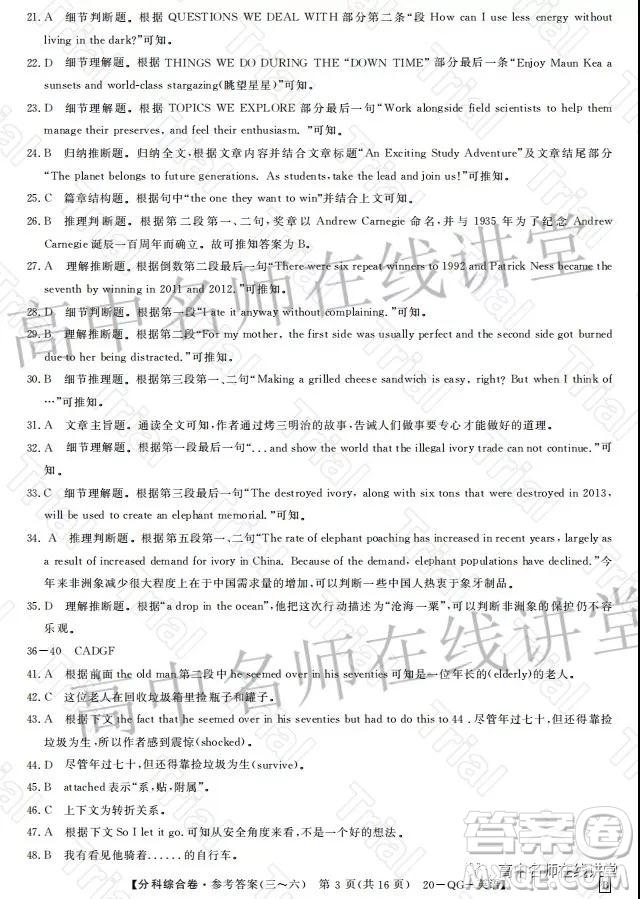 21. A 细节判断题。根据 QUESTIONS WE DEAL WITH 部分第二条“段 How can I use less energy without
living in the dark?”可知。
22. D 细节理解题。根据 THINGS WE DO DURING THE “DOWN TIME” 部分最后一条“Enjoy Maun Kea a
sunsets and world-class stargazing(眺望星星)”可知。
23. D 细节理解题。根据 TOPICS WE EXPLORE 部分最后一句“Work alongside field scientists to help
manage their preserves, and feel their enthusiasm. ”可知。
24. B 归纳推断题。归纳全文,根据文章内容并结合文章标题“An Exciting Study Adventure”及文章结尾部分
“The planet belongs to future generations. As students, take the lead and join us!”可推知。
25. C 篇章结构题。根据句中“the one they want to win”并结合上文可知。
26. B 推理判断题。根据第二段第一、二句,奖章以 Andrew Carnegie 命名,并与 1935 年为了纪念 Andrew
Carnegie 诞辰一百周年而确立。故可推知答案为 B。
27. A 理解推断题。根据倒数第二段最后一句“There were six repeat winners to 1992 and Patrick Ness became the
seventh by winning in 2011 and 2012.”可推知。
28. D 细节理解题。根据第一段“I ate it anyway without complaining.”可知。
29. B 理解推断题。根据第二段“For my mother, the first side was usually perfect and the second side got burned
due to her being distracted.”可推知。
30. B 细节推理题。根据第三段第一、二句“Making a grilled cheese sandwich is easy, right? But when I think of
…”可推知。
31. A 文章主旨题。通读全文可知,作者通过烤三明治的故事,告诫人们做事要专心才能做好的道理。
32. A 细节理解题。根据第一段最后一句“...and show the world that the illegal ivory trade can not continue.”可
知。
33. C 细节理解题。根据第三段最后一句“The destroyed ivory, along with six tons that were destroyed in 2013,
will be used to create an elephant memorial.”可知。
34. A 推理判断题。根据第五段第一、二句“The rate of elephant poaching has increased in recent years, largely as
a result of increased demand for ivory in China. Because of the demand, elephant populations have declined.”今
年来非洲象减少很大程度上在于中国需求量的增加,可以判断一些中国人热衷于象牙制品。
35. D 理解推断题。根据“a drop in the ocean”,他把这次行动比喻为“沧海一粟”,可以判断非洲象的保护仍不容
乐观。
36－40 CADGF
41. A 根据前面 the old man 第二段中 he seemed over in his seventies 可知是一位年长的(elderly)的老人。
42. C 这位老人在回收垃圾箱里捡瓶子和罐子。
43. A 根据下文 the fact that he seemed over in his seventies but had to do this to 44 . 尽管年过七十,但还得靠捡
垃圾为生,所以作者感到震惊(shocked)。
44. D 尽管年过七十,但还得靠捡垃圾为生(survive)。
45. B attached 表示“系,贴,附属”。
46. C 上下文为转折关系。
47. A 根据下文 So I let it go. 可知从安全角度考虑,不是一个好主意。
48. B 我有看见他骑着……的自行车。
【分科综合卷·参考答案(三～六) 第 3 页(共 16 页) 20－QG－英语】 D
高中名师在线讲堂
高中名师在线讲堂
高中名师在线讲堂
Trial